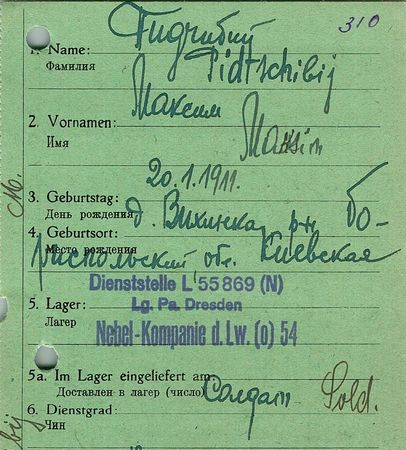 310
Пидчибий
1. Name:
Фамилия
Pidtschibij
Максим
2. Vornamen:
Имя
Maksim
20.1.1911.
3. Geburtstag:
День рождения
д. Вихинка, р-н Бо-
4. Geburtsort:
Место рождения
риспольский, обл. Киевская
Dienststelle L 55869 (N)
Lg. Pa. Dresden
5. Lager:
Лагерь
Nebel-Kompanie d. Lw. (o) 54
5a. Im Lager eingeliefert am:
Доставлен в лагерь (число)
Солдат Sold.
6. Dienstgrad:
Чин